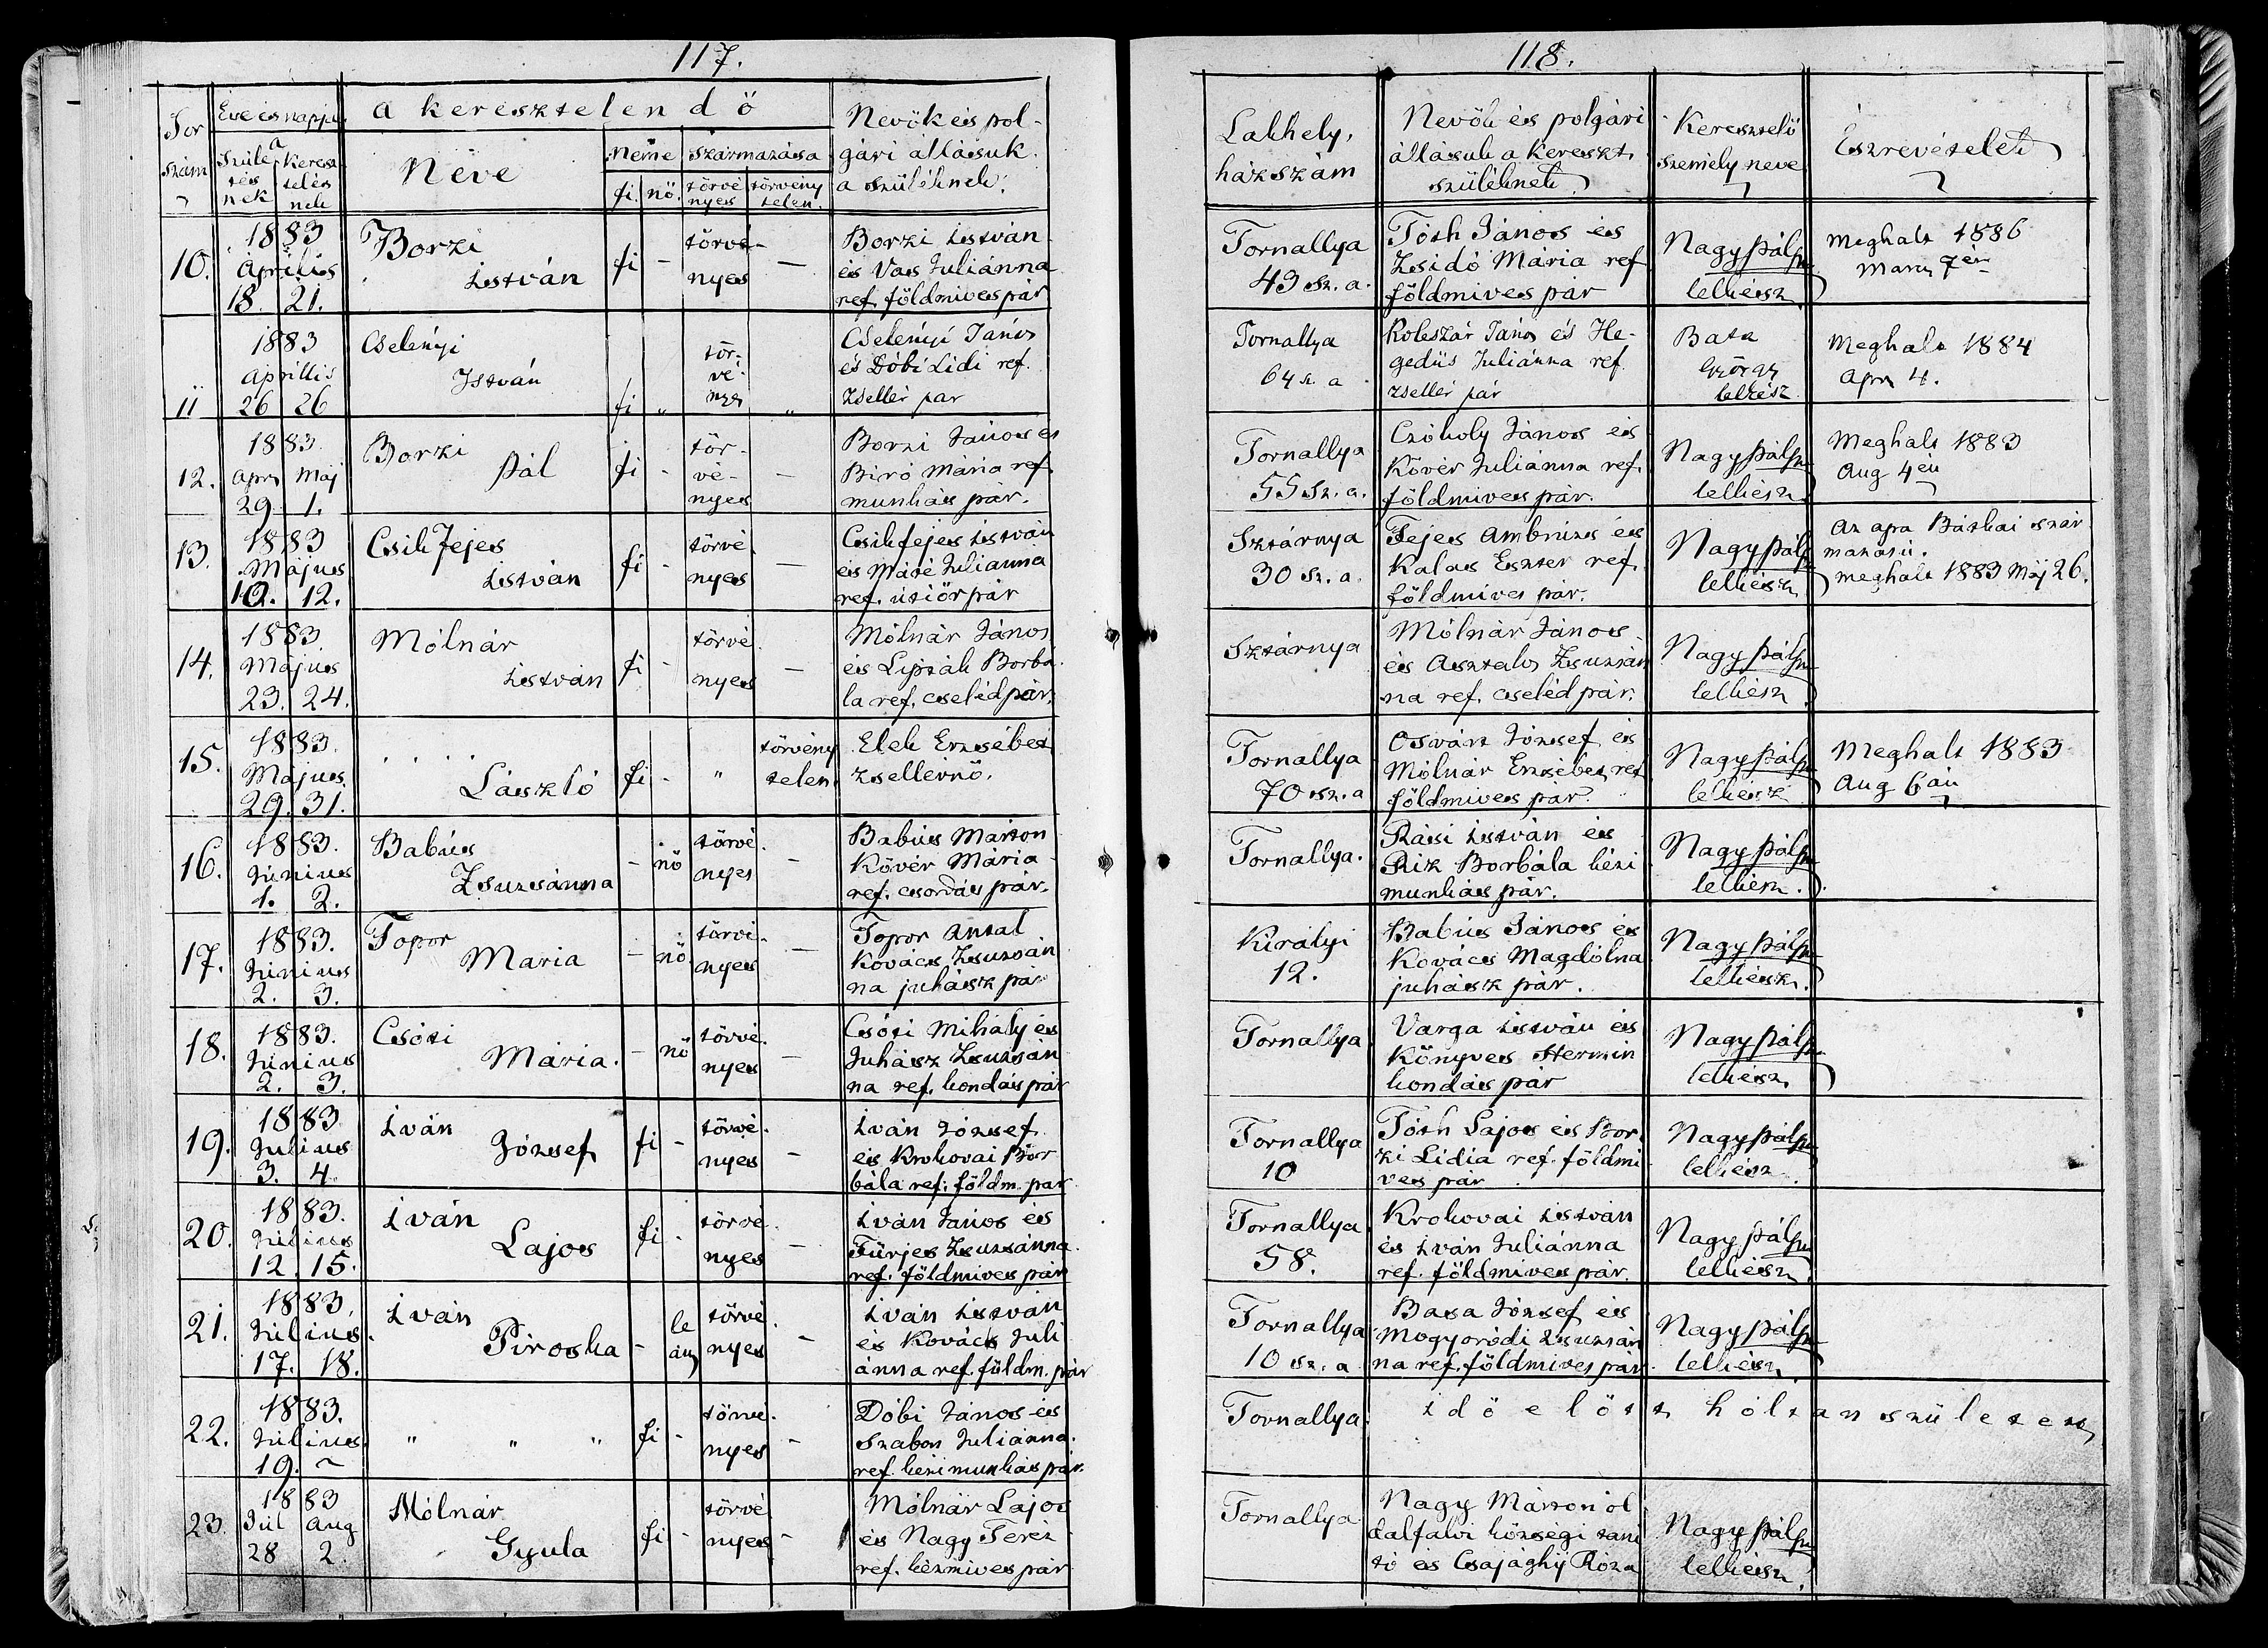 117.
Sor szám
Éve és napja a
Születésnek
keresztelésnek
a keresztelendő
Neve
Neme
fi.
nö.
származása
törvényes
törvénytelen.
Nevök és pol-
gári állásuk
a szülöknek.
10.
1883
Április
18. 21.
Borzi
István
fi
-
törvé-
nyes
-
Borzi István
és Vas Juliánna
ref. földmives pár
11
1883
aprillis
26 26
Cselényi
István
fi
"
tör-
vé-
nyes
"
Cselényi János
és Dóbi Lidi ref.
zsellér par
12.
1883.
apr. Máj
29. 1.
Borzi
Pál
fi
-
tör-
vé-
nyes
-
Borzi János és
Biró Mária ref.
munkás pár.
13.
1883
Május
10. 12.
Csik Fejes
István
fi
-
törvé
nyes
-
Csik fejes István
és Máté Julianna
ref. útiőr pár
14.
1883.
Május
23. 24.
Mólnár
István
fi
-
törvé
nyes
-
Mólnár János
és Lipták Borbá-
la ref. cseléd pár.
15.
1883.
Május
29. 31.
László
fi
-
"
törvény
telen
Elek Erzsébet
zsellérnö.
16.
1883.
Június
1. 2.
Babús
Zsuzsánna
-
nö
törvé.
nyes
-
Babús Márton
Kövér Mária
ref. csordás pár.
17.
1883.
Június
2. 3.
Topor
Maria
-
nö
törvé.
nyes
-
Topor Antal
Kovács Zsuzsán
na juhász pár
18.
1883.
Június
2. 3.
Csóti
Mária.
-
nö
törvé.
nyes
-
Csóti Mihály és
Juhász Zsuzsán
na ref. kondás pár
19.
1883
Julius
3. 4.
Iván
József
fi
-
törvé.
nyes
-
Iván József
és Krokovai Bor
bála ref. földm. pár
20.
1883.
Július
12. 15.
Iván
Lajos
fi
-
törvé.
nyes
-
Iván János és
Fürjes Zsuzsánna
ref. földmives pár
21.
1883.
Július.
17. 18.
Iván
Piroska
-
le
ány
törvé.
nyes
-
Iván István
és Kovács Juli
ánna ref. földm. pár
22.
1883.
Július.
19. ~
" " "
fi
-
törvé.
nyes
-
Dóbi János és
Szabon Juliánna.
ref. kézimunkás pár.
23.
1883
Júl Aug
28 2.
Mólnár
Gyula
fi
-
törvé
nyes
-
Mólnár Lajos
és Nagy Teréz
ref. kézmives pár
118.
Lakhely,
házszám
Nevök és polgári
állásuk a kereszt.
szülöknek
Keresztelö
személy neve
Észrevételek
Tornallya
43 sz. a.
Tóth János és
Zsidó Mária ref
földmives pár
Nagy Pál
lelkész
Meghalt 1886
7én
Tornallya
64 sz. a
Koleszár János és He-
gedüs Juliánna ref.
zsellér pár
Bata
György
lelkész
Meghalt 1884
Apr. 4.
Tornallya
55 sz. a.
Czókoly János és
Kövér Juliánna ref.
földmives pár.
Nagy Pál
lelkész
Meghalt 1883
Aug 4én
Sztárnya
30 sz. a.
Fejes Ambrus és
Kalas Eszter ref.
földmives pár.
Nagy Pál
lelkész
Az apa Bátkai szár
mazású.
meghalt 1883 Máj 26.
Sztárnya
Mólnár János
és Asztalos Zsuzsán
na ref. cseléd pár.
Nagy Pál
lelkész
Tornallya
70 sz. a
Osvárt József és
Mólnár Erzsébet ref
földmives par.
Nagy Pál
lelkész
Meghalt 1883
Aug 6án
Tornallya.
Rási István és
Rik Borbála kézi
munkás pár.
Nagy Pál
lelkész.
Királyi
12.
Babús János és
Kovács Magdólna
juhász pár.
Nagy Pál
lelkész.
Tornallya
Varga István és
Könyves Hermin
kondás pár
Nagy Pál
lelkész.
Tornallya
10
Tóth Lajos és Bor
zi Lidia ref. földmi
ves pár
Nagy Pál
lelkész
Tornallya
58.
Krokovai István
és Iván Juliánna
ref. földmives pár.
Nagy Pál
lelkész
Tornallya
10 sz. a
Basa József és
Mogyoródi Zsuzsán
na ref. földmives pár.
Nagy Pál
lelkész
Tornallya.
idő elött holtan született
Tornallya
Nagy Márton ol
dalfalvi községi tani
tó és Csajághÿ Róza
Nagy Pál
lelkész.